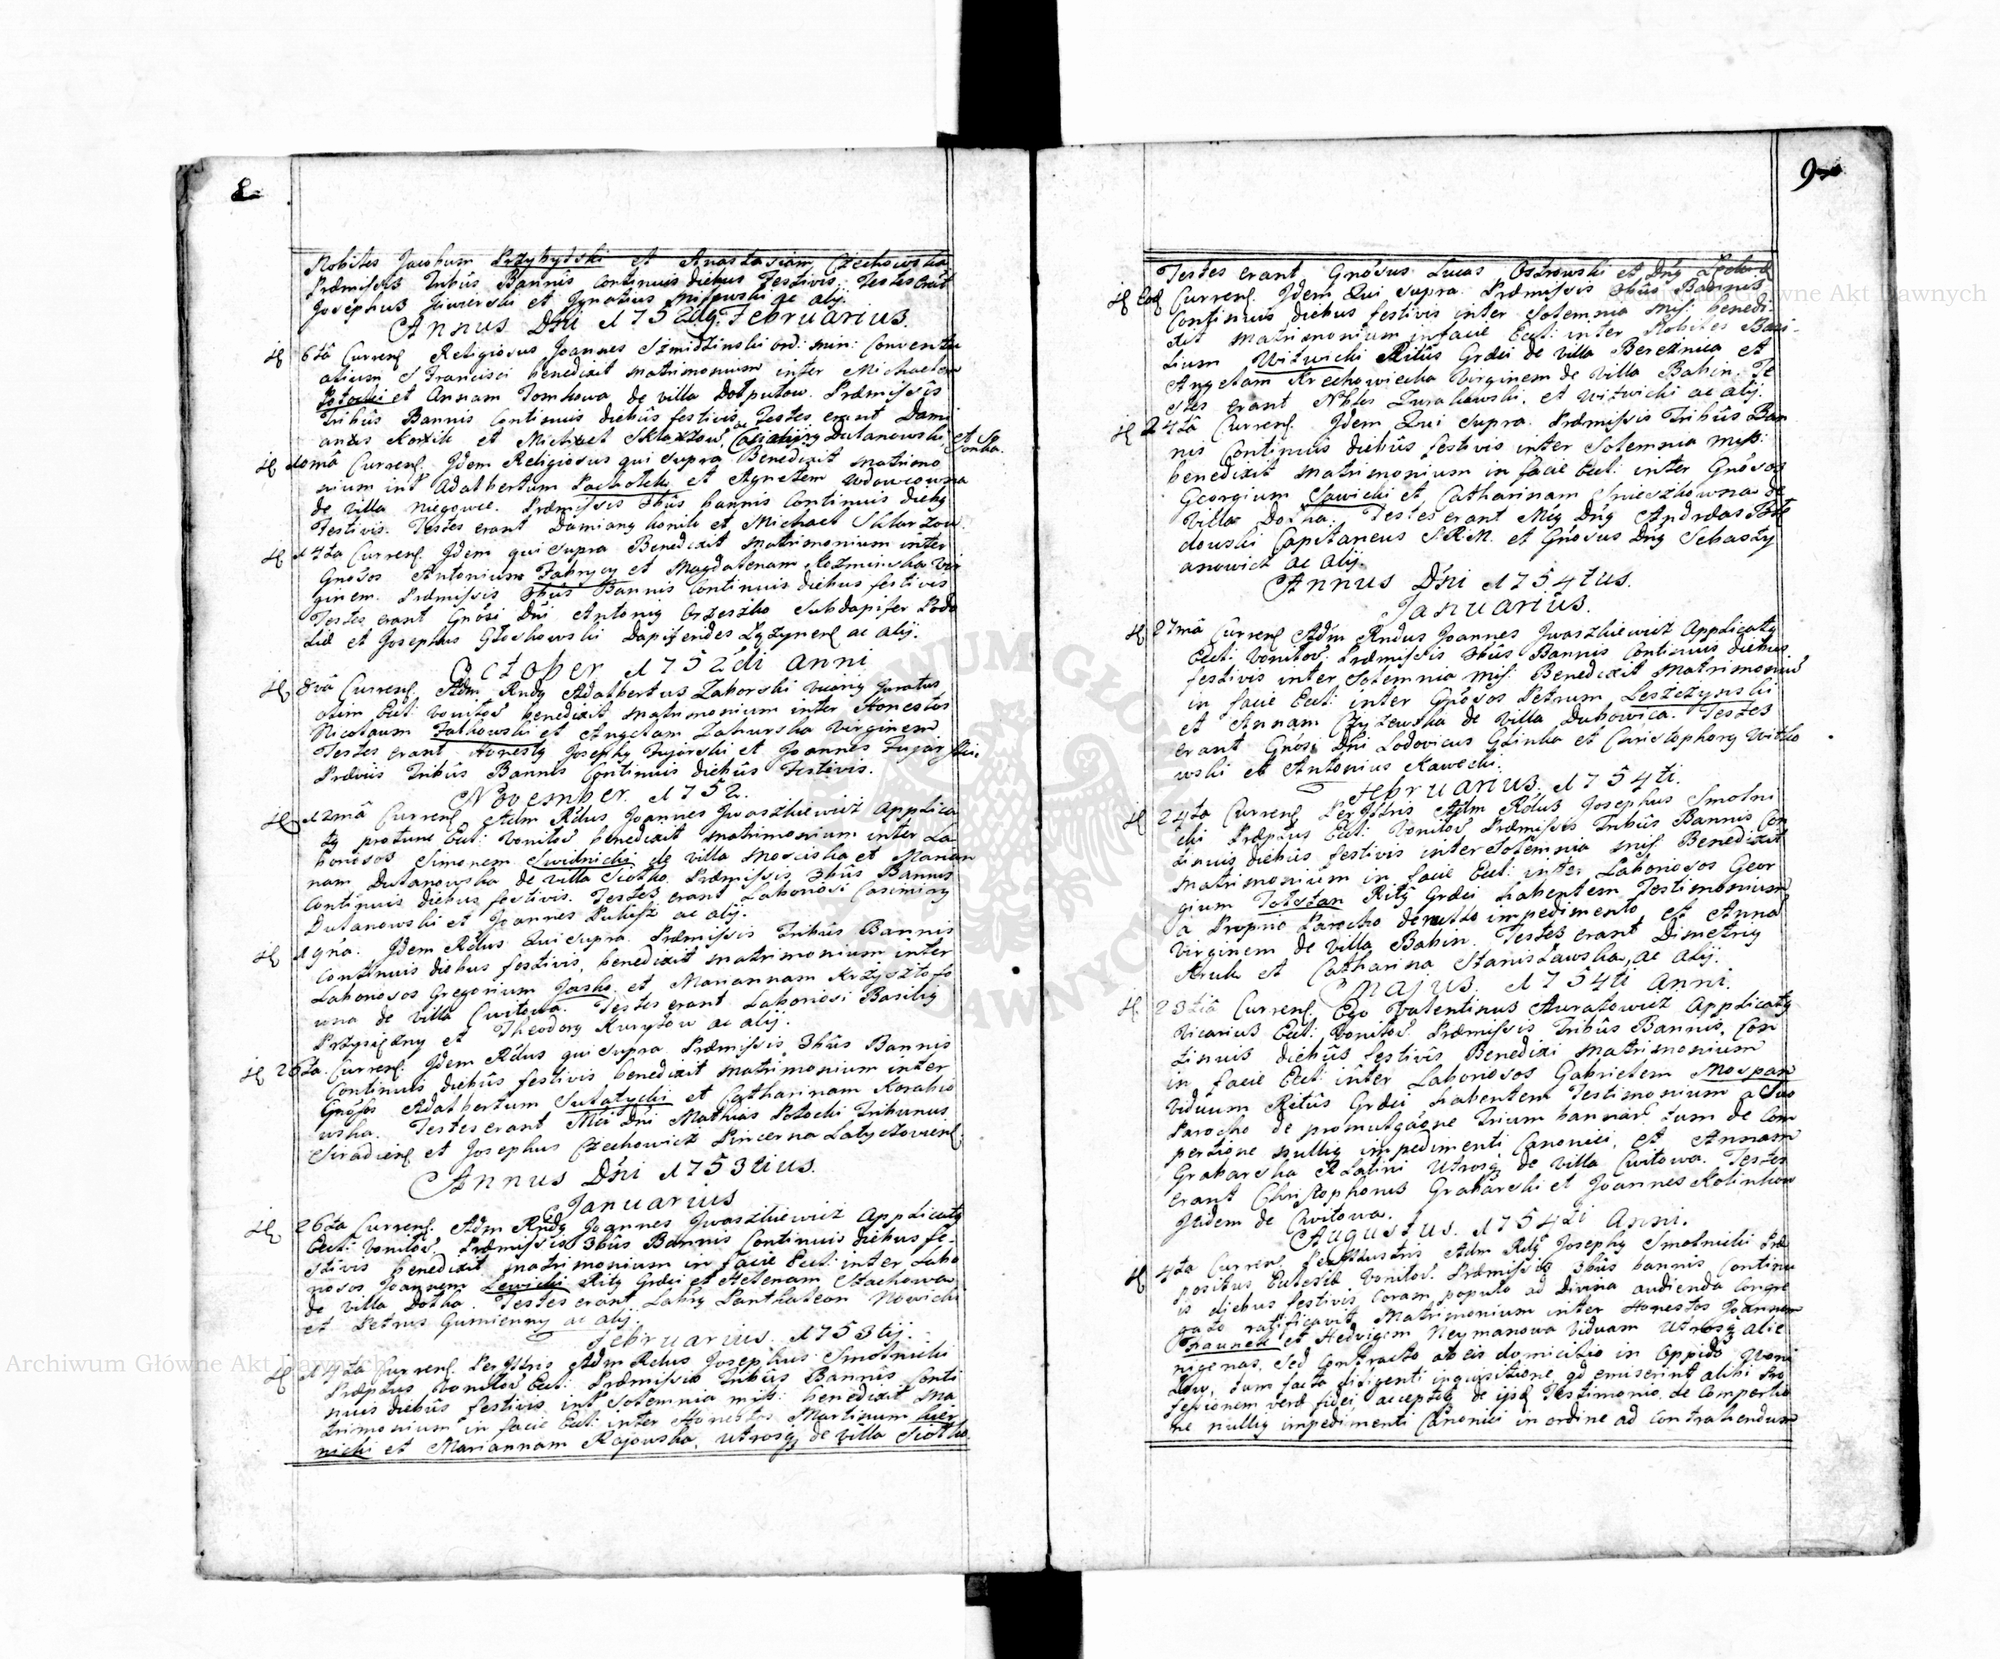 8
Nobiles Jacobum Przybylski et Anastasiam Czechowska
Præmissis tribûs Bannis continuis diebus Festivis. Testes erãt
Josephus et Ignatius ac alij.
Annus Dñi 1752dg. Februarius.
6ta Curreñ Religiosus Joannes Szmidzinski ord: min: Conventu
alium S Francisci benedixit matrimonium inter Michaelem
Potocki et Annam Tomkowa de villa Dołputow. Præmissis
Tribûs Bannis Continuis diebûs festivis, Testes erant Dami
anus Konik et Michael Sklarzow, Casimirg Dulanowski et So
bonka.
10mâ Curreñ. Jdem Religiosus qui supra Benedixit matrimo
nium int Adalbertum Pachołek et Agnetem wdowcowna
de villa Niegowce. Præmissis 3bûs bannis Continuis diebg
Festivis. Testes erant Damiang konik et Michael Sklarzow.
14ta Curreñ. Jdem qui supra Benedixit Matrimonium inter
Gnôsos Antonium Fabrycy et Magdalenam Kozminska Vir
ginem. Præmissis 3bûs Bannis Continuis diebus festivis
Testes erant Gnôsi Dñi Antonig Orzeszko Subdapifer Podo
liæ et Josephus Głochowski Dapiferides ac alij.
October 1752di anni
8vâ Curreñ Adm Rndg Adalbertus Zaborski Vicarig Juratus
olim Eccl: Vonilov benedixit matrimonium inter Honestos
Nicolaum Fałkowski et Angelam Zahurska Virginem
Testes erant Honestg Josephg Fujarski et Joannes Fujarski.
Præviis Tribûs Bannis Continuis diebûs Festivis.
November 1752.
12mâ Curreñ Adm Rdus Joannes Jwaszkiewicz Applica
tg protunc Eccl: Vonilov benedixit matrimonium inter La
boriosos Simonem Swidnicki de villa Mosciska et Marian
nam Dulanowska de villa Siołko. Præmissis 3bûs Bannis
Continuis diebus festivis. Testes erant Laboriosi Casimirg
Dulanowski et Joannes ac alij.
19na. Jdem Rdus Qui supra. Præmissis Tribûs Bannis
Continuis diebus festivis, benedixit matrimonium inter
Laboriosos Gregorium Jasko et Mariannam Krzysztofo
wna de villa Cwitowa. Testes erant Laboriosi Basilig
Przysiężny et Theodorg Kuryłow ac alij.
26ta. Curreñ. Jdem Rdus qui supra Præmissis 3bûs Bannis
Continuis diebûs festivis benedixit matrimonium inter
Gnôsos Adalbertum Sulatycki et Catharinam Korabio
wska. Testes erant Mci Dñi Mathias Potocki Tribunus
Siradieñ et Josephus Czechowicz Pincerna Latyczovieñ.
Annus Dñi 1753tius.
Januarius
26ta Curreñ. Adm Rndg Joannes Jwaszkiewicz Applicatg
Eccl: Vonilov. Præmissis 3bûs Bannis Continuis diebus fe-
stivis benedixit matrimonium in facie Eccl: inter Labo
riosos Joannem Lewicki Ritg Græci et Helenam Stachowa
de villa Dołha. Testes erant Labrg Panthaleon Nowicki
et Petrus Gumienny ac alij.
Februarius. 1753tij.
14ta Curreñ Perillris Adm Rdus Josephus Smolnicki
Præptus Vonilov Eccl: Præmissis tribûs Bannis Conti
nuis diebûs festivis int Solemnia miss: benedixit ma
trimonium in facie Eccl: inter Honestos Martinum kier
nicki et Mariannam Rajowska, utrosq de villa Siołko.
9
Testes erant Gnôsus Lucas Ostrowski et Dñg
Eod Curreñ. Jdem Qui supra. Præmissis 3bûs Bannis
Continuis diebus festivis inter solemnia miss. benedi-
xit matrimonium in facie Eccl: inter Nobiles Basi-
lium Witwicki Ritûs Græci de villa Bereznica et
Angelam Krechowiecka Virginem de villa Babin. Te
stes erant Nbles Zurakowski, et Witwicki ac alij.
24ta Curreñ. Jdem Qui supra. Præmissis Tribûs Ban
nis Continuis diebûs festivis inter Solemnia miss:
benedixit matrimonium in facie Eccl: inter Gnôsos
Georgium Sawicki et Catharinam Snieszkowna de
villa Dołha. Testes erant Mcg Dñg Andræas
dowski Capitaneus S.R.M. et Gnôsus Dñg Sebasty
anowicz ac alij.
Annus Dñi 1754tus.
Januarius.
27mâ Curreñ Adm Rndus Joannes Jwaszkiewicz Applicatg
Eccl: Vonilov. Præmissis 3bûs Bannis Continuis diebus
festivis inter solemnia miss. Benedixit matrimoniũ
in facie Eccl: inter Gnôsos Petrum Leszczynski
et Annam Czyzewska de villa Dubowica. Testes
erant Gnôsi Dñi Lodovicus Glinka et Christophorg Witko
wski et Antonius Kawecki.
Februarius. 1754ti.
24ta Curreñ Perillris Adm Rdus Josephus Smolni
cki Præptus Eccl: Vonilov Præmissis Tribûs Bannis Con
tinuis diebus festivis inter Solemnia miss. Benedixit
matrimonium in facie Eccl: inter Laboriosos Geor
gium Totstan Ritg Græci habentem Testimonium
a Proprio Parocho de nullo impedimento et Annã
Virginem de villa Babin. Testes erant Dimetrig
Kruk et Catharina Stanisławska, ac alij.
Majus. 1754ti Anni.
23tiâ Curreñ Ego Valentinus Auratowicz Applicatg
Vicarius Eccl: Vonilov. Præmissis Tribûs Bannis, Con
tinuis diebûs festivis Benedixi matrimonium
in facie Eccl: inter Laboriosos Gabrielem Mospan
Viduum Ritûs Græci habentem Testimonium a Suo
Parocho de promulgãone Trium bannor. tum de Com
pertione nullig impedimenti Canonici, et Annam
Grabarska R Latini Utrosq de villa Cwitowa. Testes
erant Christophorus Grabarski et Joannes Kolinkow
Jtidem de Cwitowa.
Augustus. 1754ti Anni.
4ta Curreñ. Perillustris Adm Rdg Josephg Smolnicki Præ
positus Ecclesiæ Vonilov. Præmissis 3bûs bannis Continu
is diebus festivis coram populo ad Divina audienda Congre
gato ratificavit Matrimonium inter Honestos Joannem
Fraunek et Hedvigem Neymanowa Viduam Utrosq alie
nigenas, sed contracto ab eis domicilio in Oppido Woni
łow, tum facta diligenti inquisitione, qd emiserint alibi Pro
fessionem veræ fidei, acceptis de ijsd Testimonio de Compertio
ne nullig impedimenti Canonici in ordine ad contrahendum
Archiwum Główne Akt Dawnych
Archiwum Główne Akt Dawnych